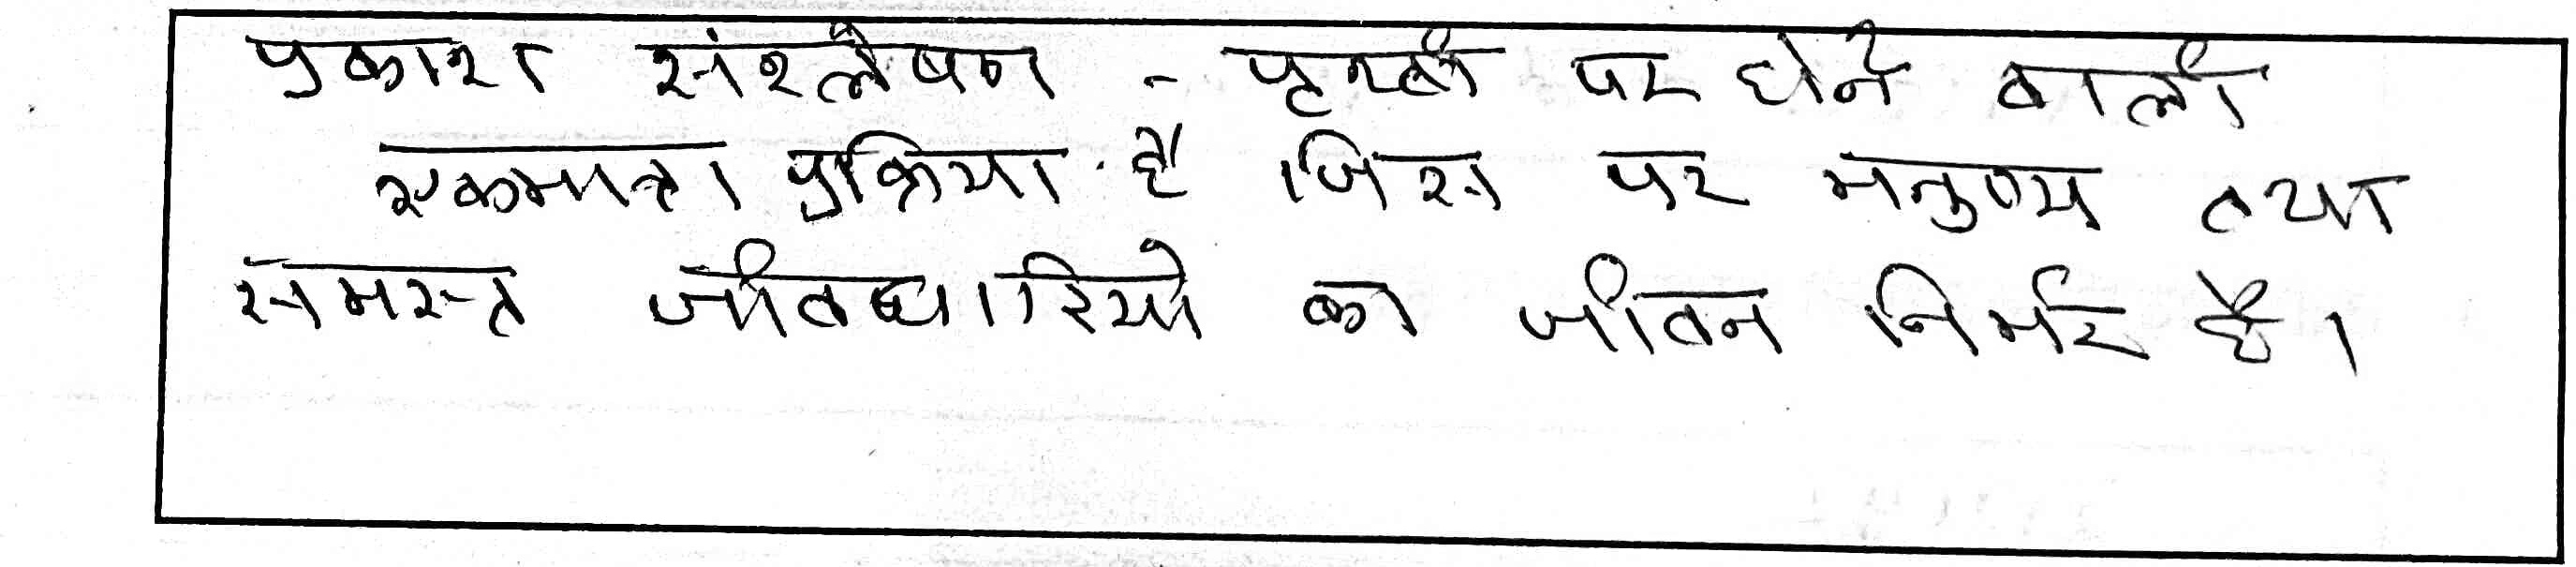 प्रकाश संश्लेषण - पृथ्वी पर होने वाली
एकमात्र प्रक्रिया है जिस पर मनुष्य तथा
समस्त जीवधारियो का जीवन निर्भर है।